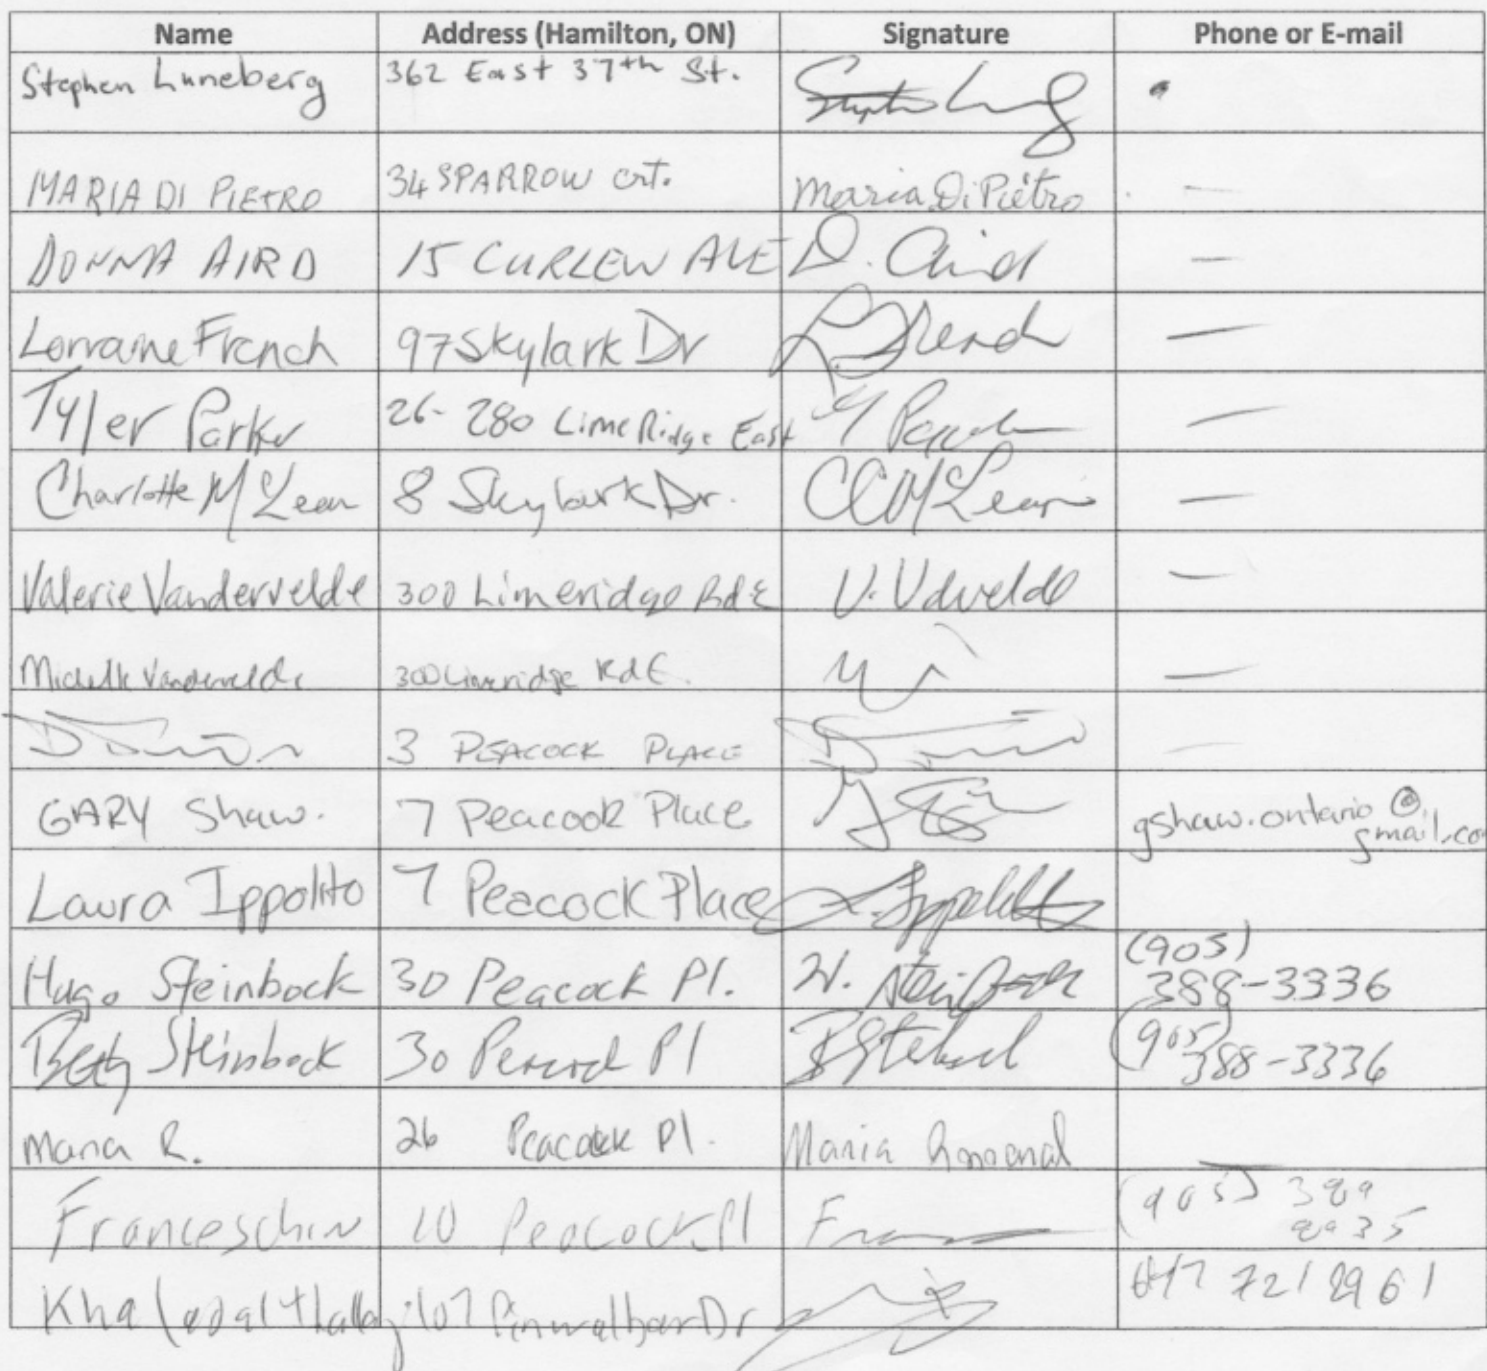 Name Address (Hamilton, ON) Signature Phone or E-mail
Stephen Luneberg 362 East 37th St.
MARIA DI PIETRO 34 SPARROW crt. Maria Di Pietro —
DONNA AIRD 15 CURLEW AVE D. Aird —
Lorraine French 97 Skylark Dr L. French —
Tyler Parker 26-280 LimeRidge East —
Charlotte McLean 8 Skylark Dr. CCMcLean —
Valerie Vandervelde 300 Limeridge Rd E V. Vdvelde —
Michelle Vandervelde 300 Limeridge Rd E. —
3 PEACOCK PLACE —
GARY Shaw. 7 Peacock Place gshaw.ontario@
gmail.co
Laura Ippolito 7 Peacock Place L. Ippolito
Hugo Steinbock 30 Peacock Pl. H. Steinbock (905)
388-3336
Betty Steinbock 30 Peacock Pl (905)
388-3336
Maria R. 26 Peacock Pl. Maria
Franceschin 10 Peacock Pl (905) 389
107 Dr